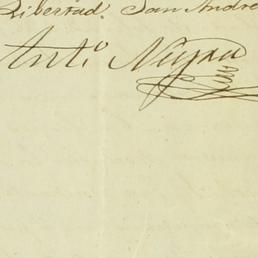 Libertad. San Andre
Anto. Neyra